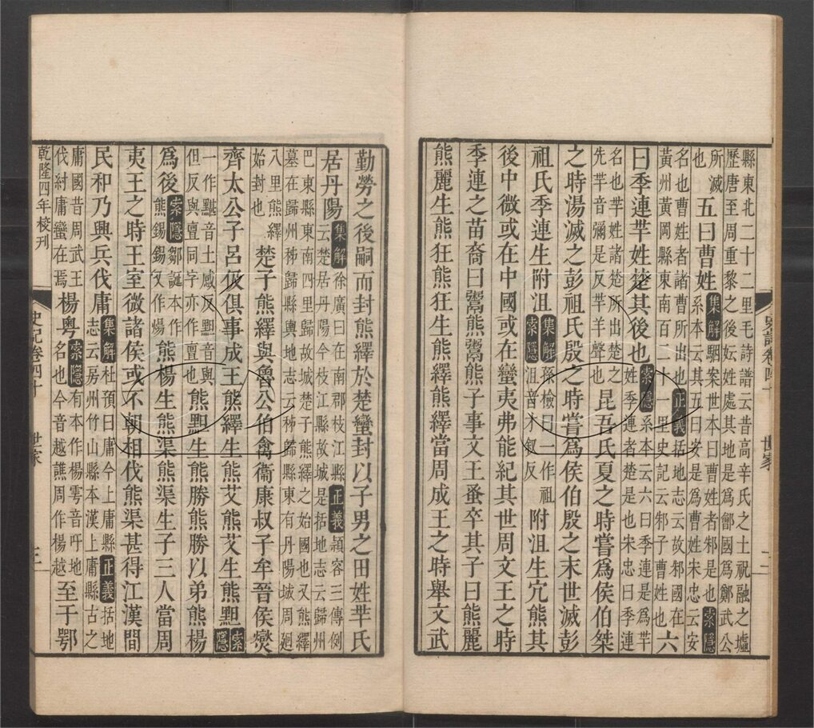 縣東北二十二里毛詩譜云昔高辛氏之土祝融之墟
歷唐至周重黎之後妘姓處其地是爲鄶國爲鄭武公
所滅也五曰曹姓集解駰案世本曰曹姓者邾是也索隱系本云其五曰安是爲曹姓宋忠云安
名也曹姓者諸曹所出也正義括地志云故邾國在黃州黃岡縣東南百二十一里史記云邾子曹姓也六
曰季連羋姓楚其後也索隱系本云六曰季連是爲羋姓季連者楚是也宋忠曰季連
名也羋姓諸楚所出楚之先羋音彌是反羋羊聲也昆吾氏夏之時嘗爲侯伯桀
之時湯滅之彭祖氏殷之時嘗爲侯伯殷之末世滅彭
祖氏季連生附沮集解孫檢曰一作祖索隱沮音才叙反附沮生穴熊其
後中微或在中國或在蠻夷弗能紀其世周文王之時
季連之苗裔曰鬻熊鬻熊子事文王蚤卒其子曰熊麗
熊麗生熊狂熊狂生熊繹熊繹當周成王之時舉文武
史記卷四十 世家 二
勤勞之後嗣而封熊繹於楚蠻封以子男之田姓羋氏
居丹陽集解徐廣曰在南郡枝江縣正義潁容三傳例云楚居丹陽今枝江縣故城是括地志云歸州
巴東縣東南四里歸故城楚子熊繹之始國也又熊繹墓在歸州秭歸縣輿地志云秭歸縣東有丹陽城周迴
八里熊繹始封也楚子熊繹與魯公伯禽衛康叔子牟晉侯燮
齊太公子呂伋俱事成王熊繹生熊艾熊艾生熊䵣索隱
一作黮音土感反䵣音與但反與亶同字亦作亶也熊䵣生熊勝熊勝以弟熊楊
爲後索隱鄒誕本作熊錫錫又作煬熊楊生熊渠熊渠生子三人當周
夷王之時王室微諸侯或不朝相伐熊渠甚得江漢間
民和乃興兵伐庸集解杜預曰庸今上庸縣正義括地志云房州竹山縣本漢上庸縣古之
庸國昔周武王伐紂庸蠻在焉楊粵索隱有本作楊雩音吁地名也今音越譙周作楊越至于鄂
乾隆四年校刊
史記卷四十 世家 三